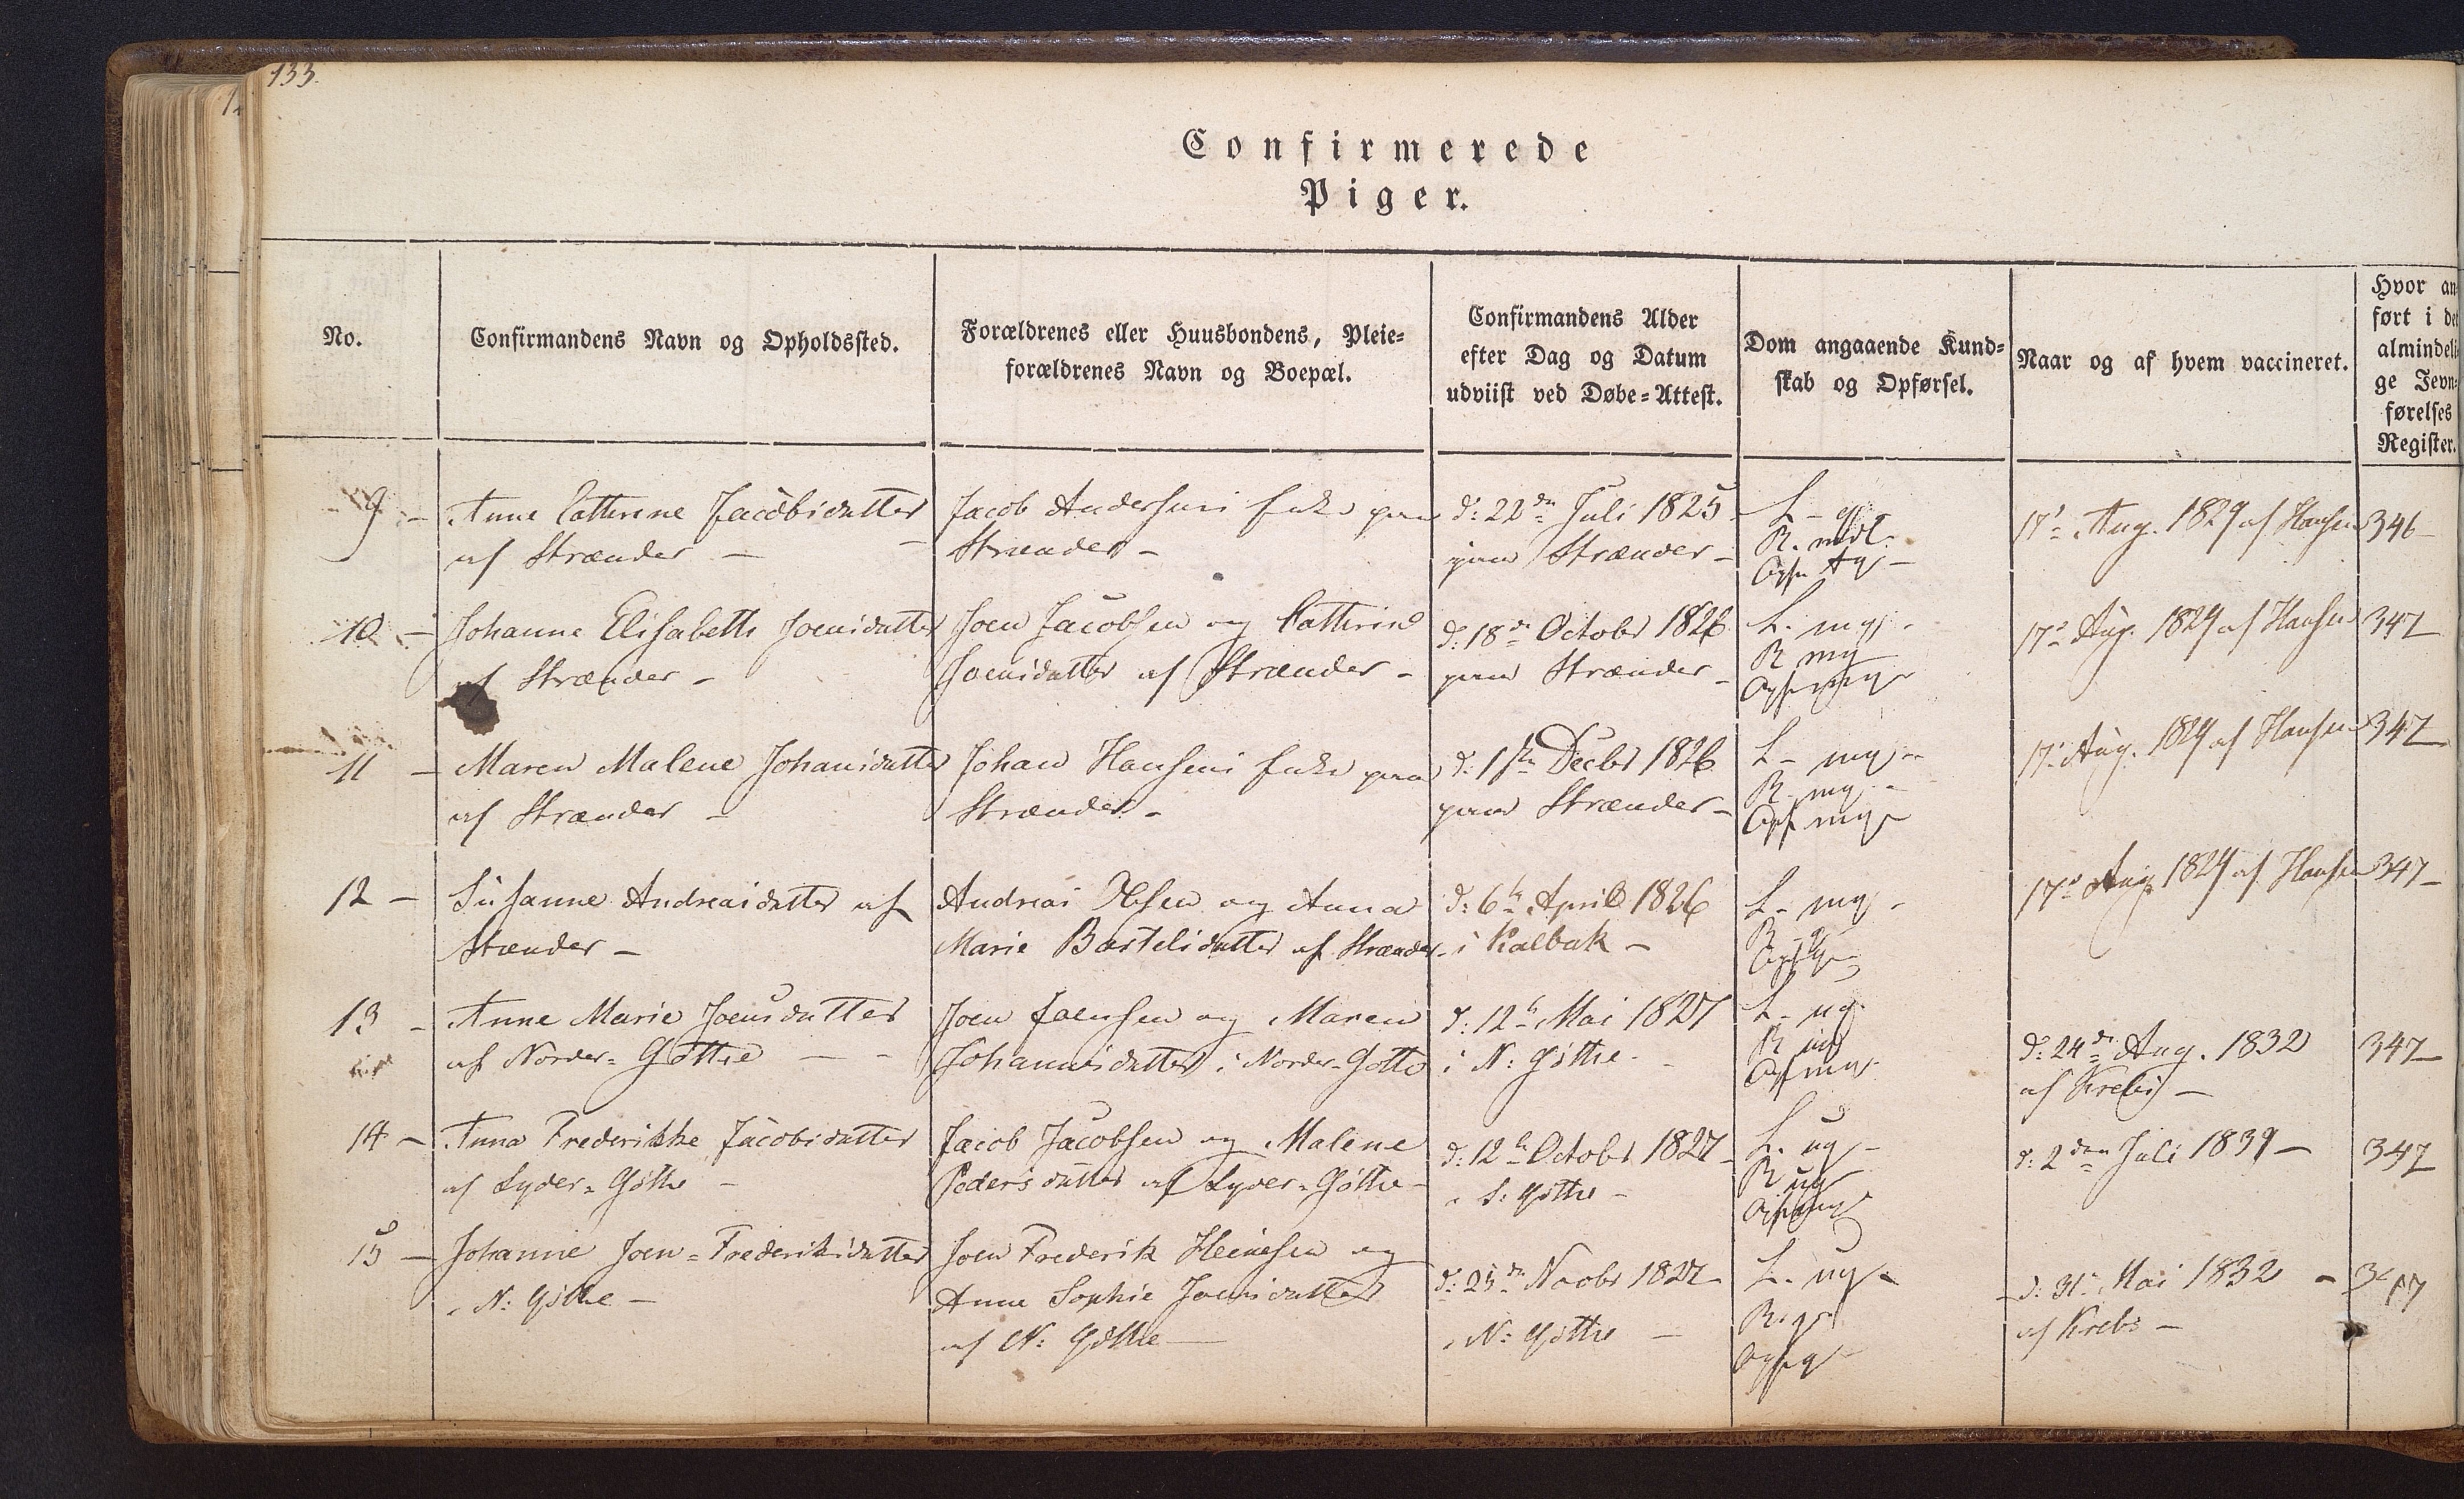 133.
Confirmerede
Piger.
No.
Confirmandens Navn og Opholdssted.
Forældrenes eller Huusbondens, Pleie-
forældrenes Navn og Boepæl.
Confirmandens Alder
efter Dag og Datum
udviist ved Døbe-Attest.
Dom angaaende Kund-
skab og Opførsel.
Naar og af hvem vaccineret.
Hvor an-
ført i de
almindeli-
ge Jevn-
førelses
Register.
9 - Anne Cathrine Jacobsdatter
af Strænder -
Jacob Andersens Enke paa
Strænder -
d: 22de Juli 1825
paa Strænder -
L -
R. mdl.
17 Aug. 1829 af Hansen
346 -
10 - Johanne Elisabeth Joensdatter
af Strænder -
Joen Jacobsen og Cathrine
Joensdatter af Strænder -
d: 18de Octobr 1826
paa Strænder -
L. mg -
R mg
17 Aug. 1829 af Hansen
347
11 - Maren Malene Johansdatter
af Strænder -
Johan Hansens Enke paa
Strænder -
d: 1ste Decbr 1826
paa Strænder -
L - mg -
R. mg -
Opf mg -
17 Aug. 1829 af Hansen
347
12 - Susanne Andreasdatter af
Strænder -
Andreas Olsen og Anna
Marie Bartelsdatter af Strænder -
d: 6te April 1826
i Kalbak -
L - mg -
17 Aug 1829 af Hansen
347 -
13 - Anne Marie Joensdatter
af Norder-Gøthe - -
Joen Joensen og Maren
Johannesdatter i Norder-Gøthe
d: 12te Mai 1827
i N: Gøthe -
L - ug
d: 24de Aug. 1832
af Krebs -
347 -
14 - Anna Frederikke Jacobsdatter
af Syder-Gøthe -
Jacob Jacobsen og Malene
Pedersdatter af Syder-Gøthe -
d: 12te Octobr 1827 -
i S: Gøthe -
L. ug -
R ug
d: 2den Juli 1839 -
347
15 - Johanne Joen-Frederiksdatter
i N: Gøthe -
Joen Frederik Heinesen og
Anne Sophie Joensdatter
af N: Gøthe -
d: 25de Novbr 1827
i N: Gøthe -
L. ug -
R. g
Opf g -
d: 31 Mai 1832 -
af Krebs -
347